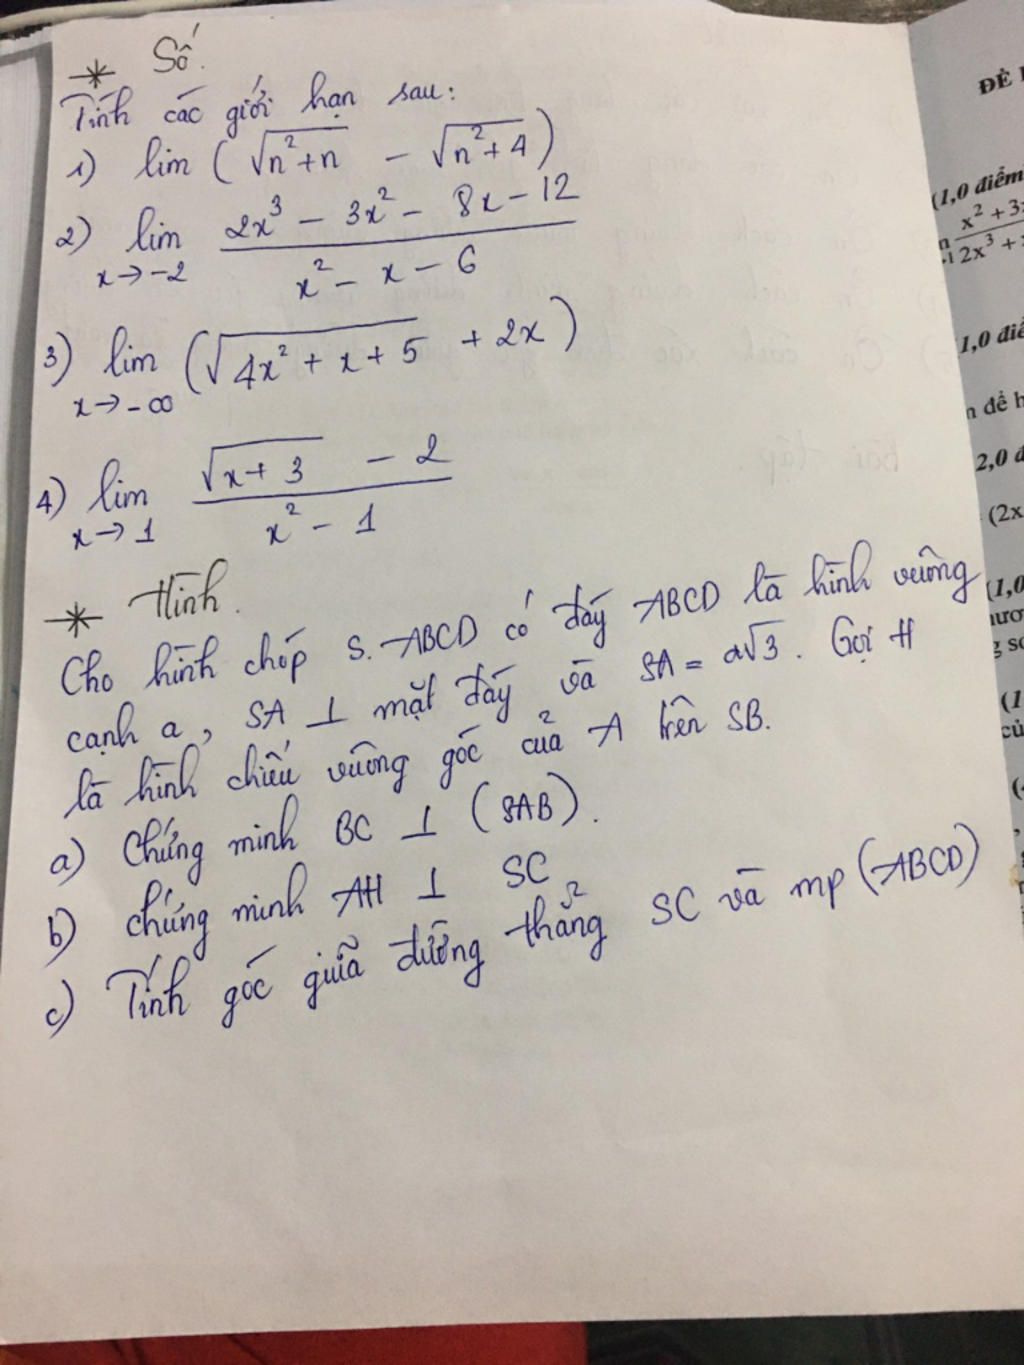 * Số.
Tính các giới hạn sau:
1) lim (√(n²+n) - √(n²+4))
2) lim x→-2 (2x³ - 3x² - 8x - 12)/(x² - x - 6)
3) lim x→-∞ (√(4x² + x + 5) + 2x)
4) lim x→1 (√(x+3) - 2)/(x² - 1)
* Hình.
Cho hình chóp S.ABCD có đáy ABCD là hình vuông
cạnh a, SA ⊥ mặt đáy và SA = a√3. Gọi H
là hình chiếu vuông góc của A trên SB.
a) Chứng minh BC ⊥ (SAB).
b) chứng minh AH ⊥ SC
c) Tính góc giữa đường thẳng SC và mp (ABCD)
ĐỀ
(1,0 điểm
x² + 3
2x³ +
1,0
để
2,0
(2x
(1,0
(1